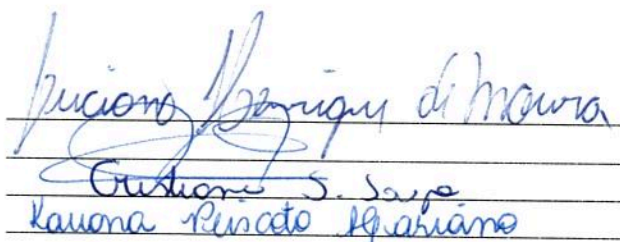 Luciana Henrique de Moura
Cristiane S. Souza
Kauana Peixoto Mariano